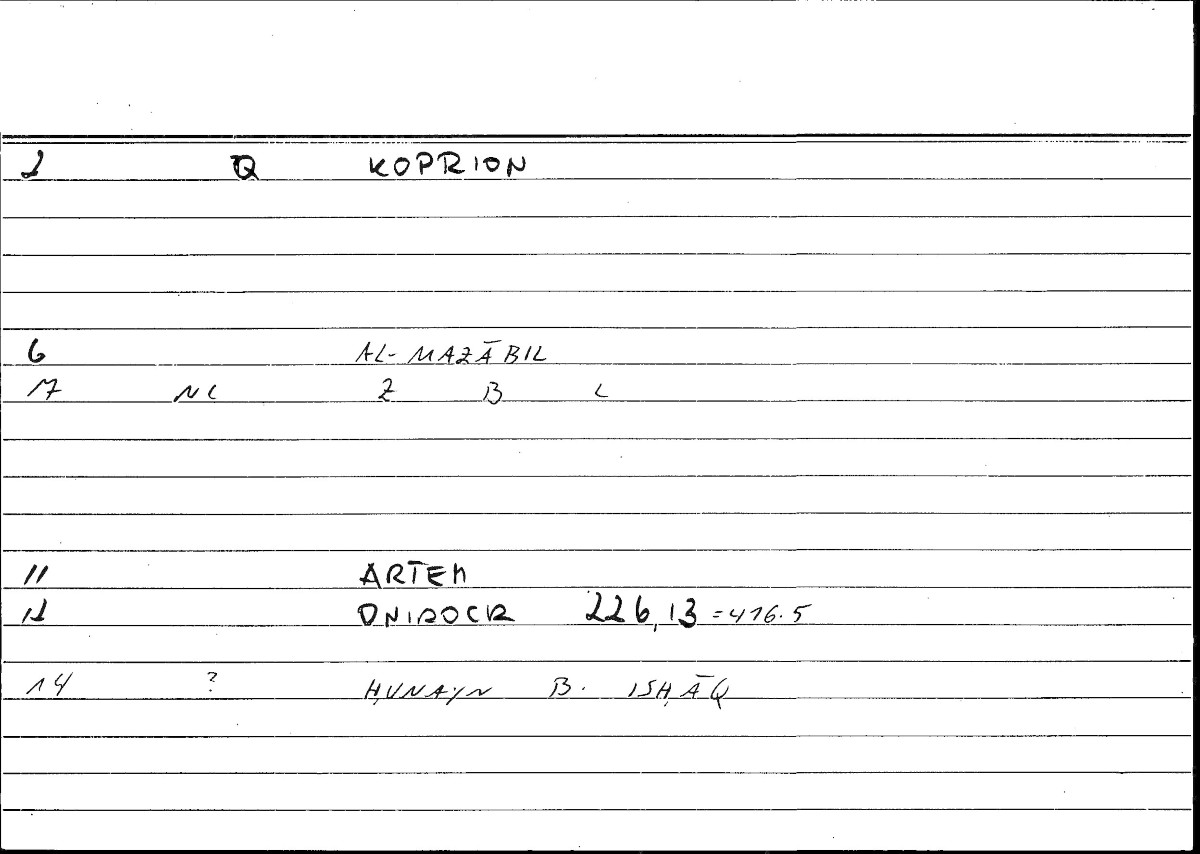 2 Q KOPRION
6 AL-MAZĀBIL
17 NL Z B L
11 ARTEM
12 ONIROCR 226,13 =416.5
14 ? ḤUNAYN B. ISḤĀQ